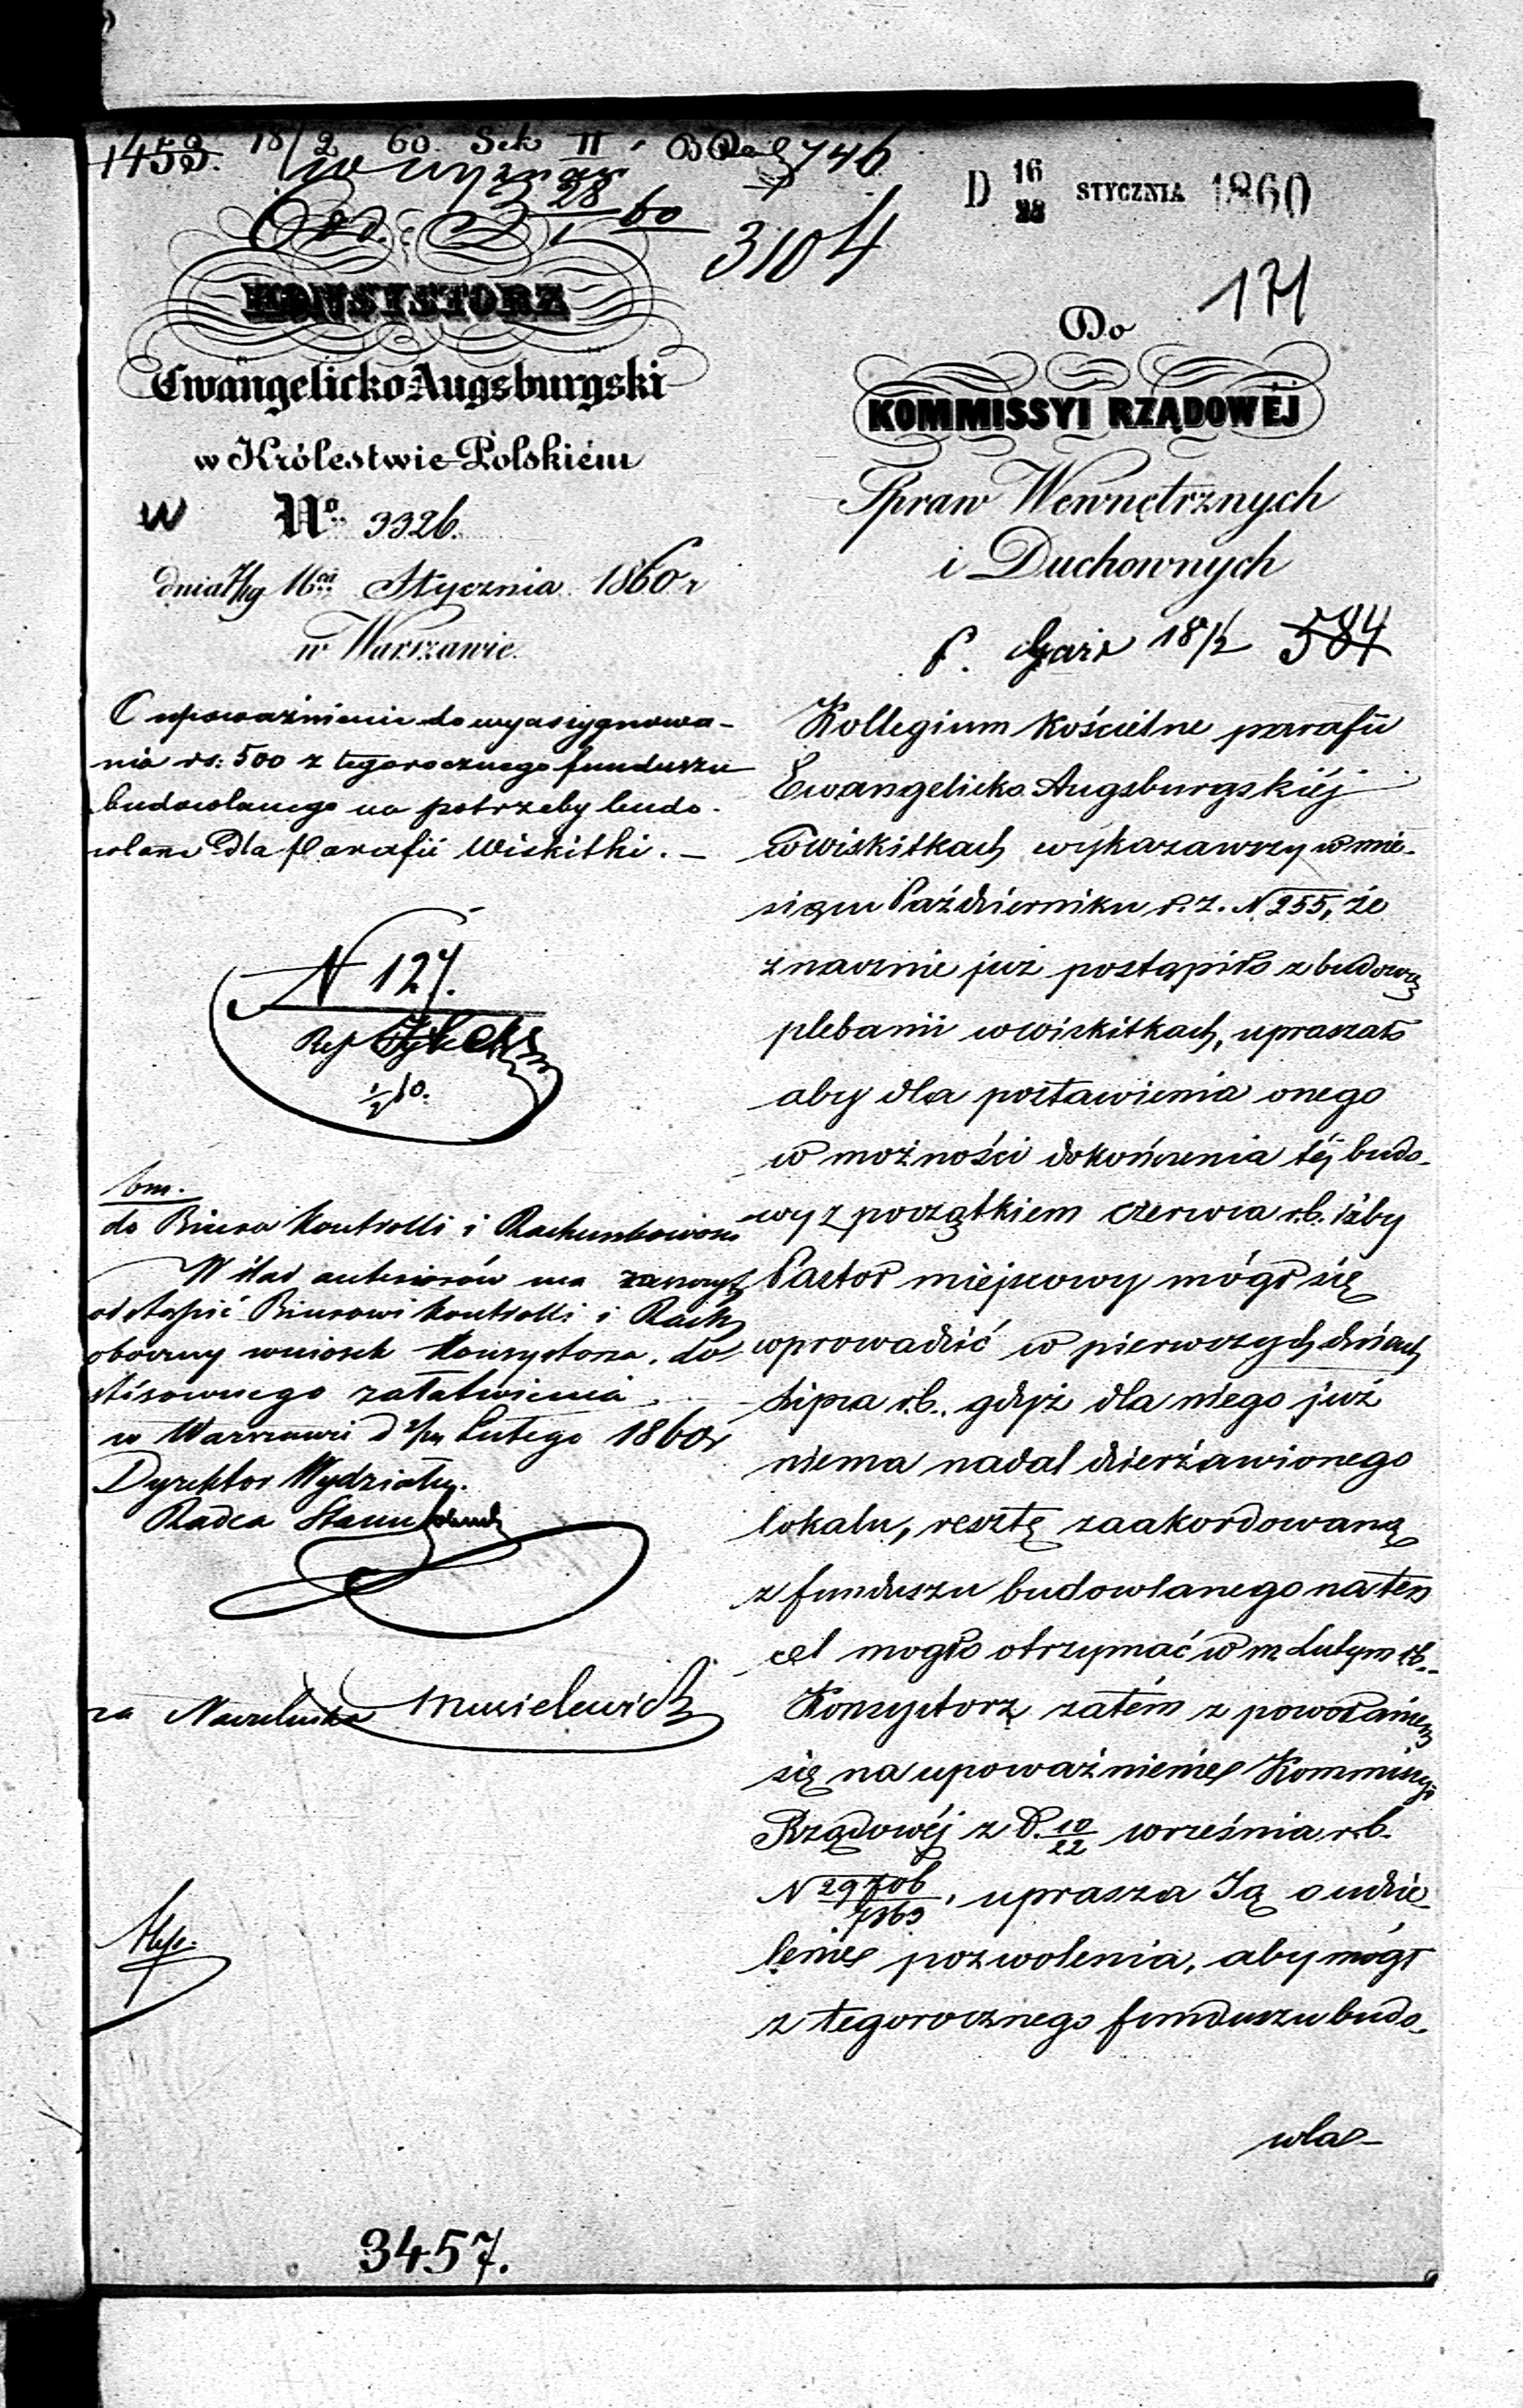 1453. 18/2 60. Sek II. 746
Wyznań
28/1 60
3104
D 16/28 STYCZNIA 1860
171
KONSYSTORZ
Ewangelicko-Augsburgski
w Królestwie Polskiém
W No. 3326.
dnia 4/16go Stycznia 1860 r
w Warszawie.
O upoważnienie do wyasygnowa-
nia rs: 500 z tegorocznego funduszu
budowlanego na potrzeby budo-
wlane dla Parafii Wiskitki. –
N 127.
Ref
1/2 60.
do Biura Kontrolli i Rachunkowości
W ślad antesiorów ma zaszczyt
odstąpić Biurowi Kontrolli i Rach
obecny wniosek Konsystorza, do
stósownego załatwienia.
w Warszawie d 2/14 Lutego 1860 r
Dyrektor Wydziału.
Radca Stanu
za Naczelnika Musielewicz
3457.
Do
KOMMISSYI RZĄDOWÉJ
Spraw Wewnętrznych
i Duchownych
18/2 584
Kollegium Kościelne parafii
Ewangelicko Augsburgskiéj
w Wiskitkach wykazawszy w mie-
siącu Październiku r. z. N 255, że
znacznie już postąpiło z budową
plebanii w Wiskitkach, upraszało
aby dla postawienia onego
w możności dokończenia téj budo-
wy z początkiem czerwca r.b. iżby
Pastor miejscowy mógł się
wprowadzić w pierwszych dniach
Lipca r.b. gdyż dla niego już
niema nadal dzierżawionego
lokalu, resztę zaakordowaną
z funduszu budowlanego na ten
cel mogło otrzymać w m Lutym rb.
Konsystorz zatém z powołaniem
się na upoważnienie Kommissyi
Rządowéj z D. 10/22 września r.b.
N 29706/7363, uprasza Ją o udzie-
lenie pozwolenia, aby mógł
z tegorocznego funduszu budo-
wla-